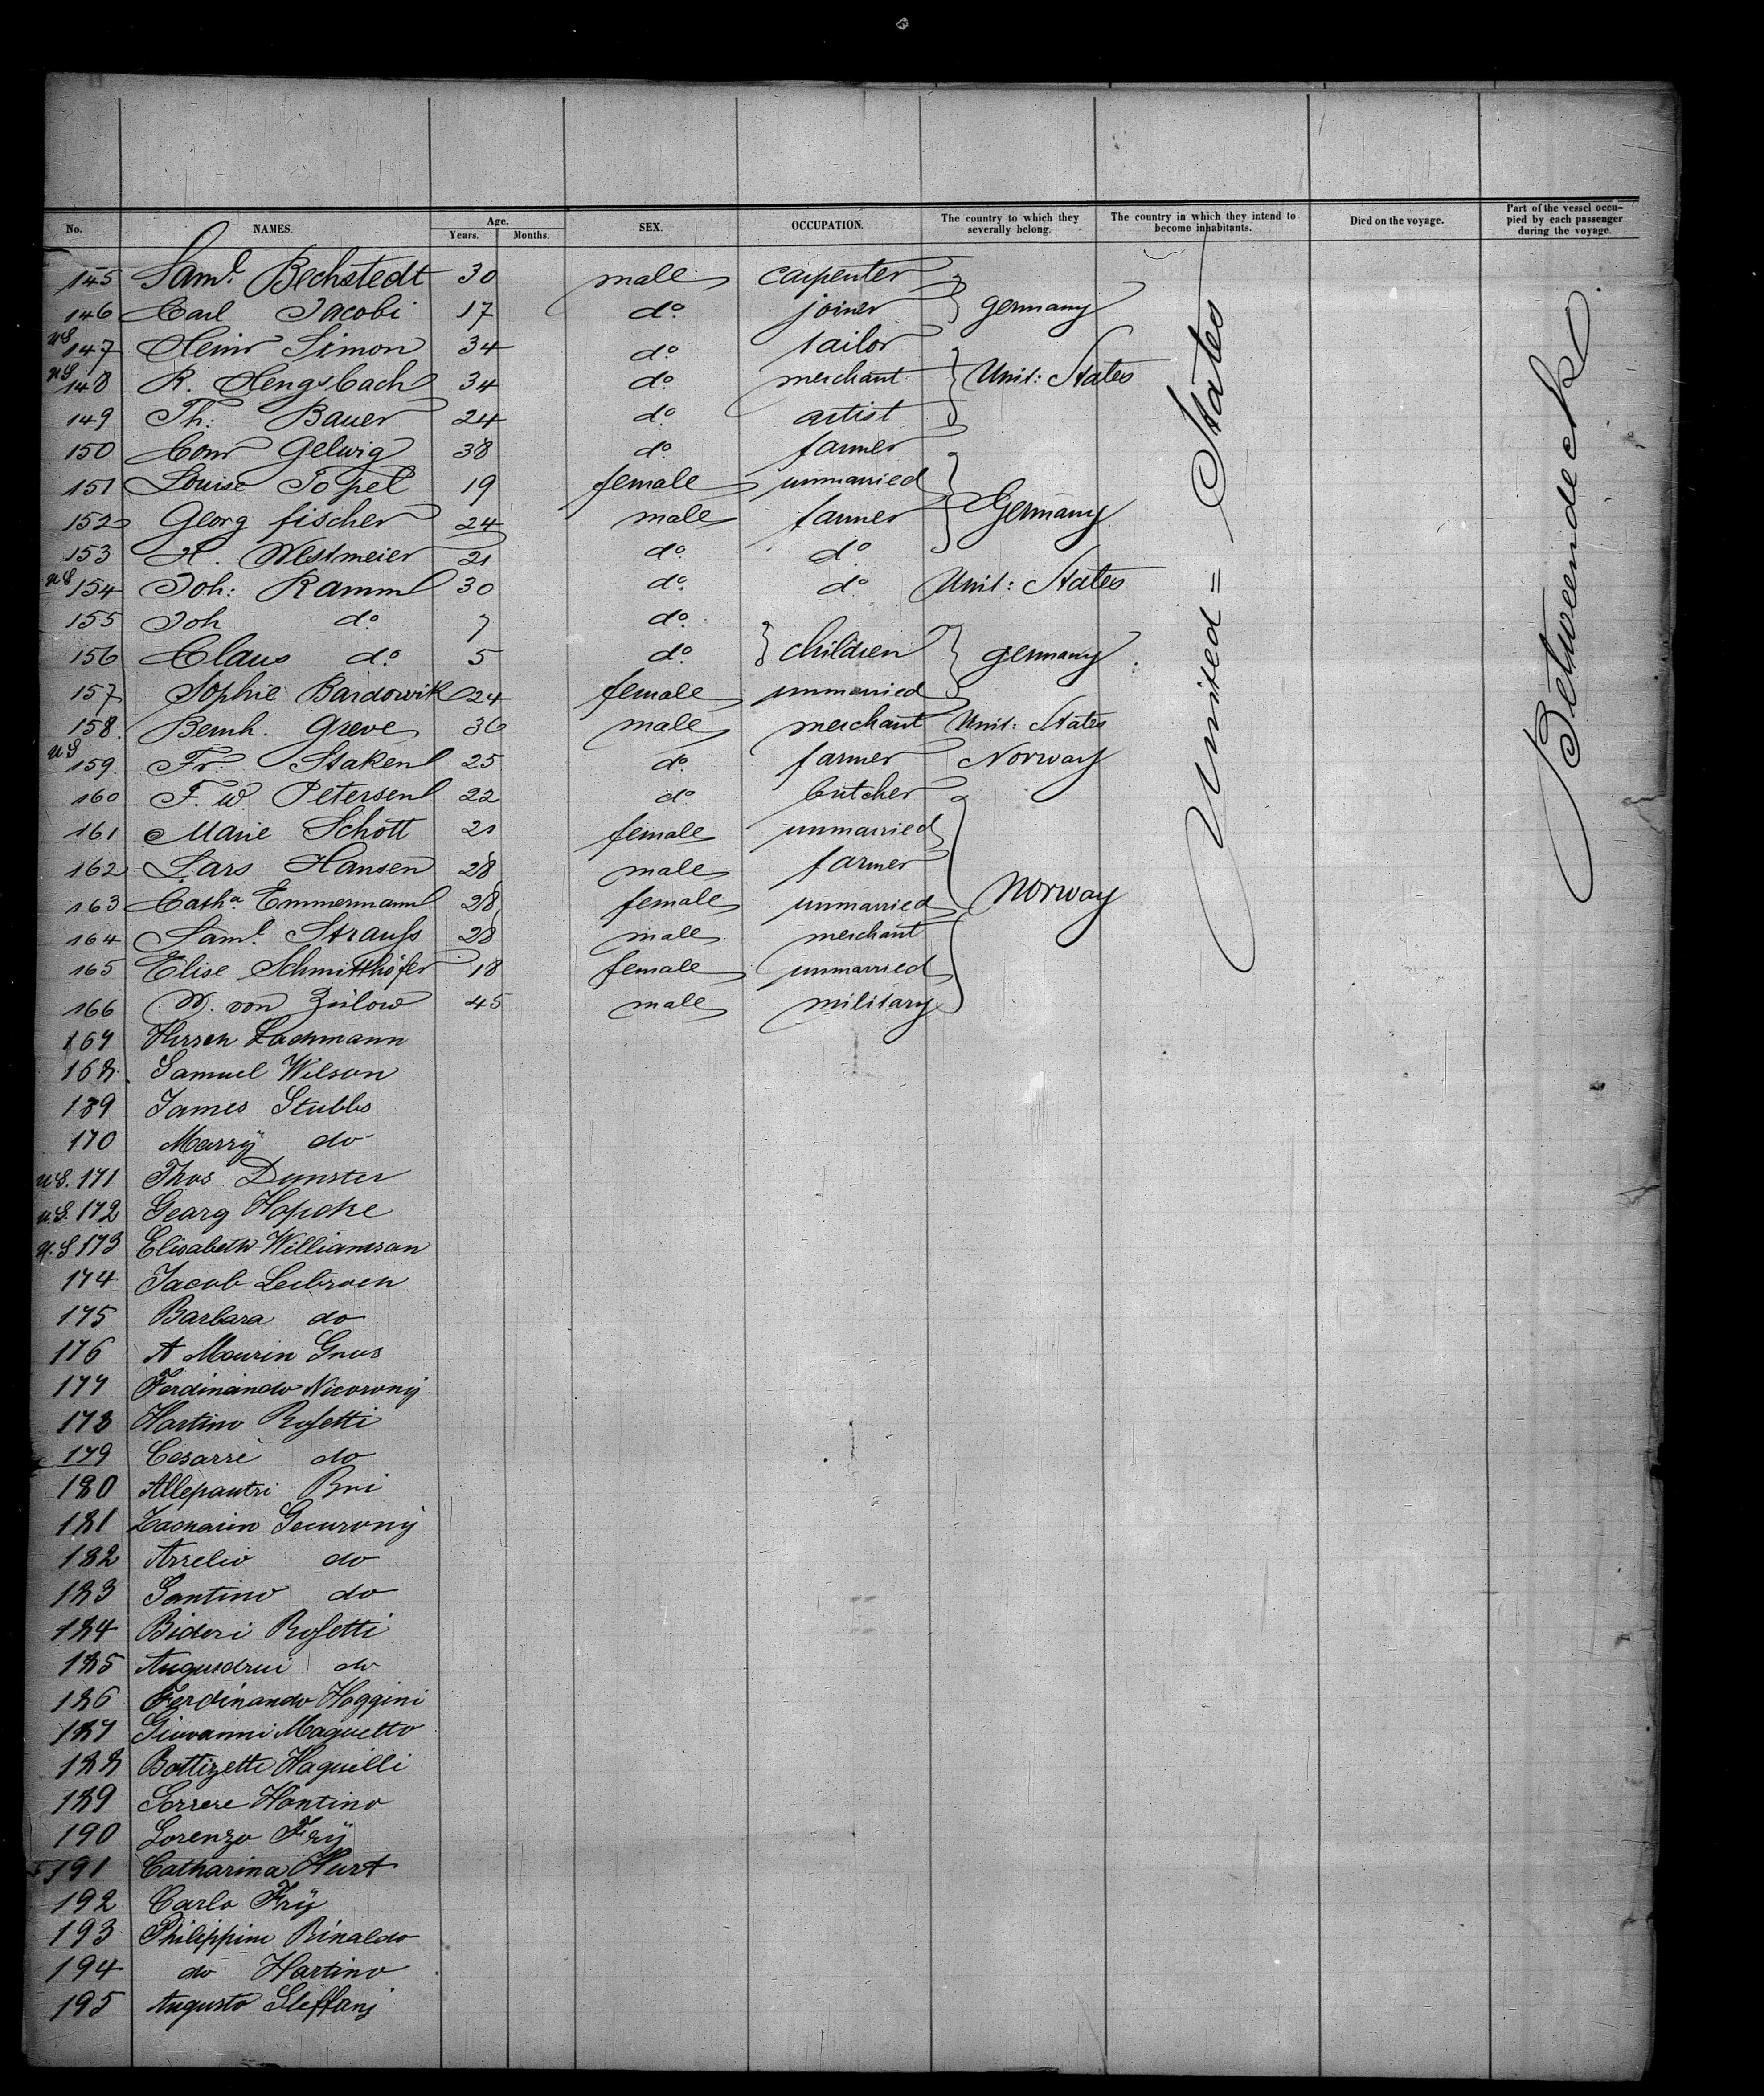 No. NAMES. Age. Years. Months. SEX. OCCUPATION. The country to which they severally belong. The country in which they intend to become inhabitants. Died on the voyage. Part of the vessel occupied by each passenger during the voyage.
145 Saml. Bechstedt 30 male carpenter
146 Carl Jacobi 17 do. joiner } Germany
US 147 Heinr Simon 34 do tailor
US 148 R. Hengsbach 34 do. merchant } Unit: States
149 Th: Bauer 24 do. artist
150 Conr Gelwig 38 do. farmer
151 Louise Topel 19 female unmarried
152 Georg fischer 24 male farmer } Germany
153 H. Westmeier 21 do. do
US 154 Joh: Ramm 30 do. do Unit: States
155 Joh do. 7 do.
156 Claus do. 5 do. } children } Germany
157 Sophie Bardowik 24 female unmarried
158. Bernh. Greve 36 male merchant Unit: States
US 159. Fr. Staken 25 do. farmer Norway
160 F. W. Petersen 22 do. butcher
161 Marie Schott 21 female unmarried
162 Lars Hansen 28 male farmer
163 Catha. Emmermann 28 female unmarried } Norway
164 Saml. Strauss 28 male merchant
165 Elise Schmitthöfer 18 female unmarried
166 W. von Zülow 45 male military
United = States
Betweendeck.
167 Hirsch Lachmann
168. Samuel Wilson
169 James Stubbs
170 Marry do
US. 171 Thos Dunster
U.S. 172 Georg Hopcke
U.S 173 Elisabeth Williamson
174 Jacob
175 Barbara do
176 A Mourin
177 Ferdinando Nicorony
178 Hartino Rosetti
179 Cesarre do
180
181
182 Arrelio do
183 Santino do
184 Bideri Rosetti
185 do
186 Ferdinando Hoggini
187 Giovanni Maguetto
188 Battizetti Haquilli
189 Gorrere Hontino
190 Lorenzo Frÿ
191 Catharina Hurt
192 Carlo Frÿ
193 Philippine Rinaldo
194 do Hartino
195 Augusto Steffani